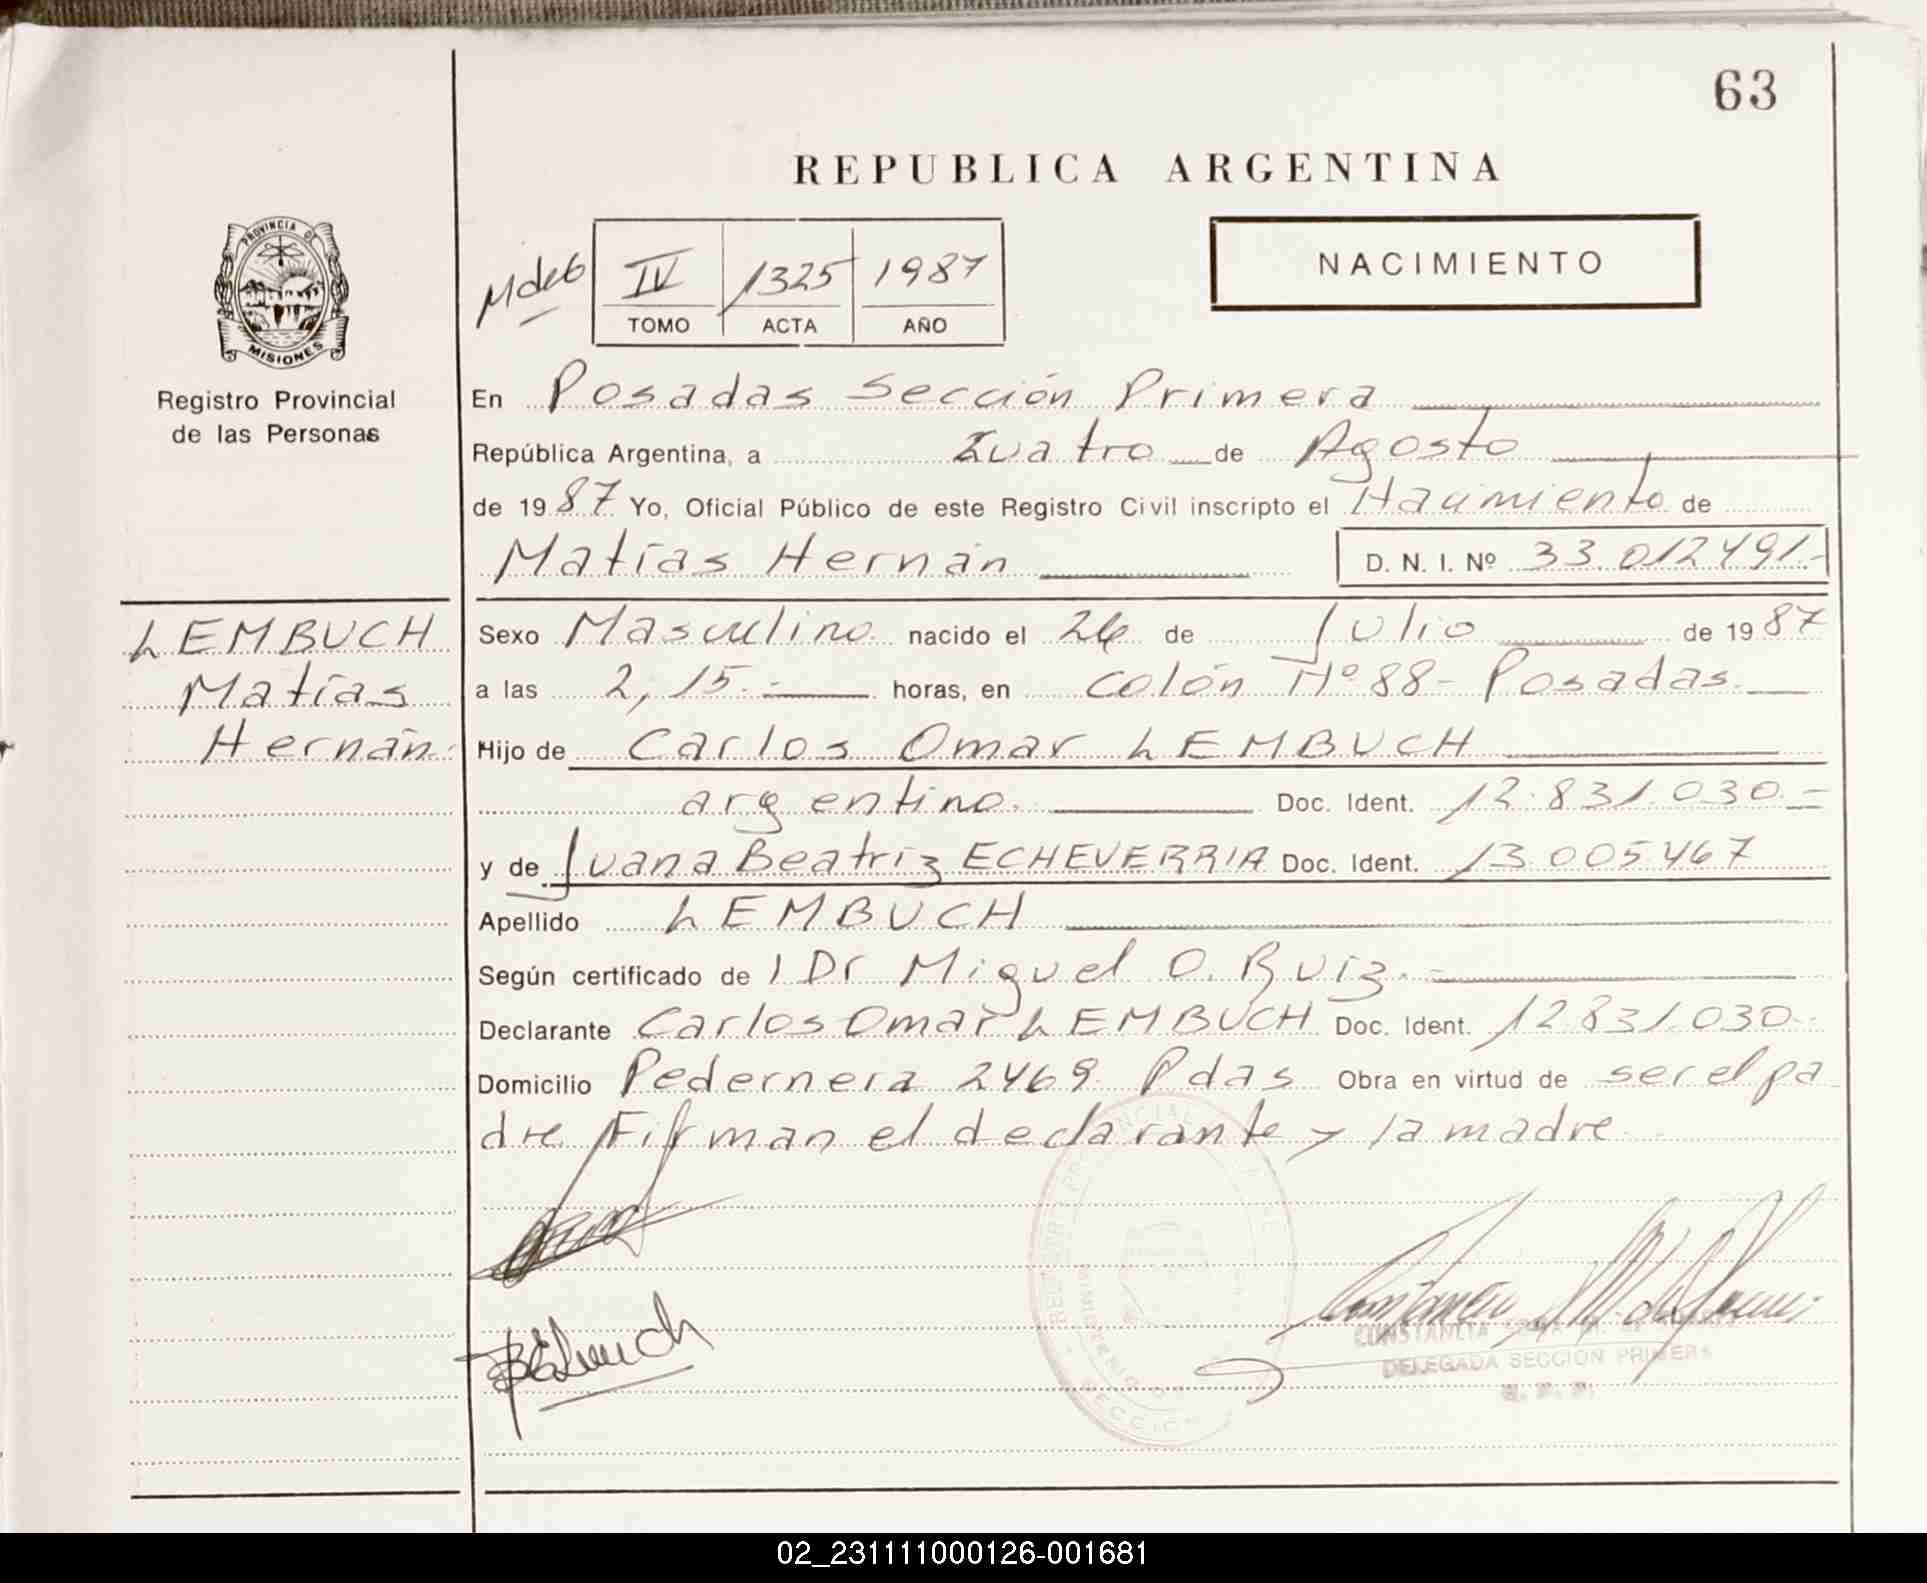 63
REPUBLICA ARGENTINA
PROVINCIA DE
MISIONES
Registro Provincial
de las Personas
IV 1325 1987
TOMO ACTA AÑO
NACIMIENTO
En Posadas Sección Primera
República Argentina, a Cuatro de Agosto
de 1987 Yo, Oficial Público de este Registro Civil inscripto el Nacimiento de
Matías Hernán D. N. I. Nº 33.012491.-
LEMBUCH
Matías
Hernán.
Sexo Masculino nacido el 26 de Julio de 1987
a las 2,15.- horas, en Colón Nº 88- Posadas.
Hijo de Carlos Omar LEMBUCH
argentino. Doc. Ident. 12.831.030.=
y de Juana Beatriz ECHEVERRIA Doc. Ident. 13.005.467
Apellido LEMBUCH
Según certificado de l Dr Miguel O. Ruiz.-
Declarante Carlos Omar LEMBUCH Doc. Ident. 12.831.030-
Domicilio Pedernera 2469. Pdas Obra en virtud de ser el pa
dre. Firman el declarante y la madre
CONSTANCIA
DELEGADA SECCION PRIMERA
02_231111000126-001681